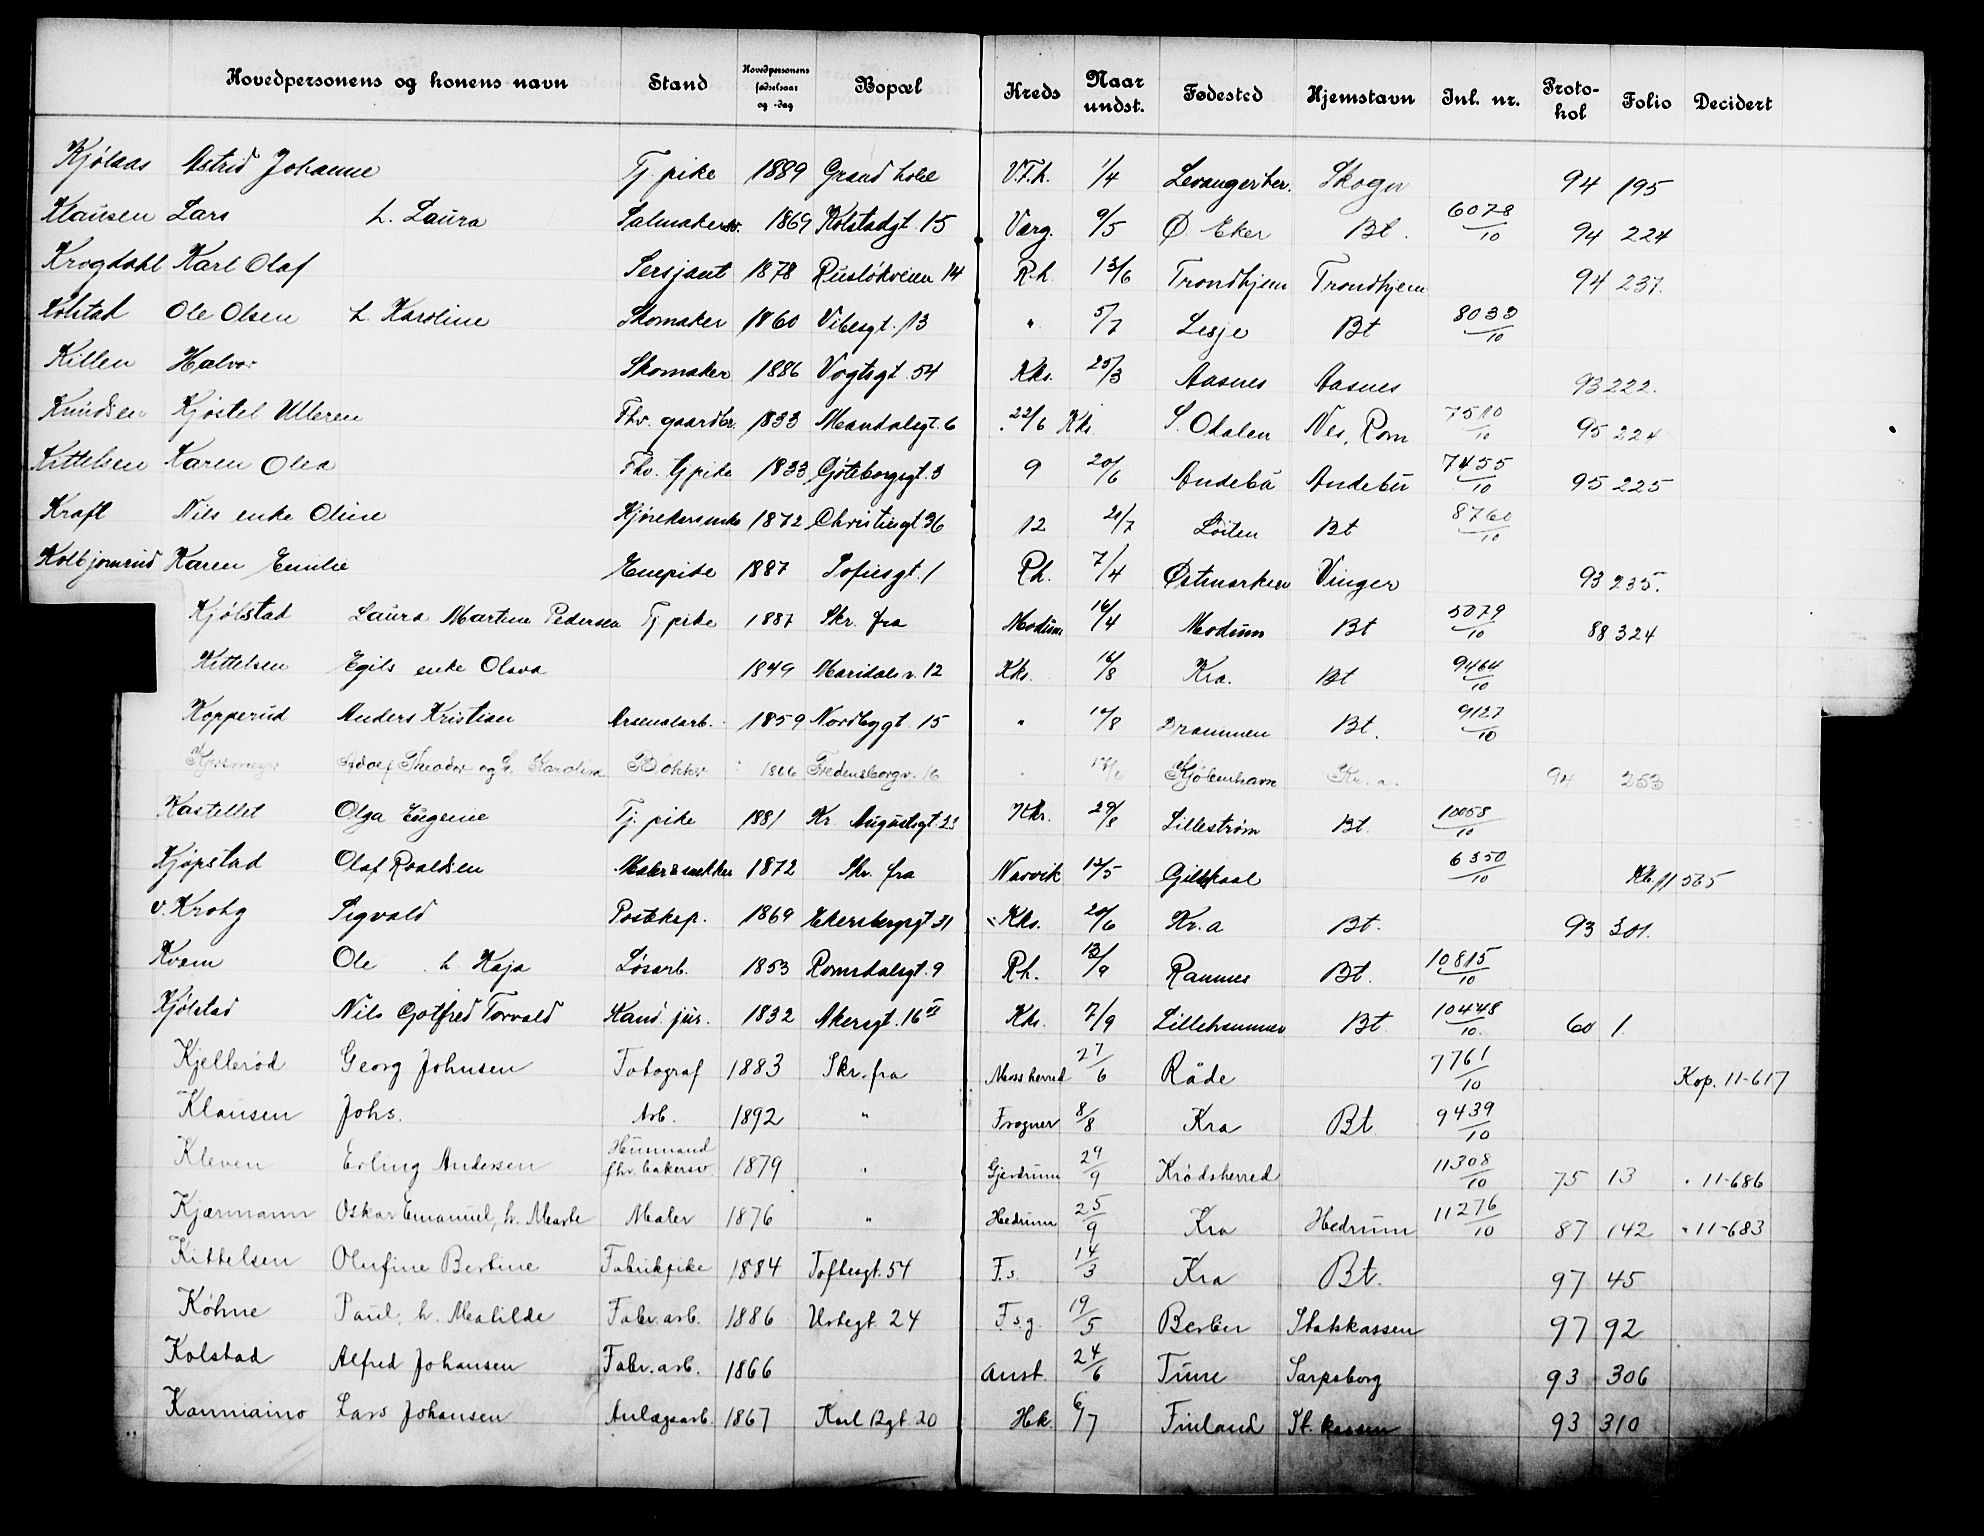 Hovedpersonens og konens navn Stand Hovedpersonens fødselsaar og -dag Bopæl Kreds Naar undst. Fødested Hjemstavn Inl. nr. Protokol Folio Decidert
Kjølaas Astrid Johanne Tj. pike 1889 Grand hotel V.F.h. 1/4 Levangerher. Skogn 94 195
Klausen Lars h. Laura Salmakersv. 1869 Kolstadgt. 15 Varg. 9/5 Ø. Eker Bt. 6078/10 94 224
Krogdahl Karl Olaf Sersjant 1878 Rusløkveien 14 R.h. 13/6 Trondhjem Trondhjem 94 237.
Kolstad Ole Olsen h. Karoline Skomaker 1860 Vibesgt. 13 " 5/7 Lesje Bt 8033/10
Killen Halvor Skomaker 1886 Vogtsgt. 54 Kks. 25/3 Aasnes Aasnes 93 222.
Knudsen Kjøstel Ulleren Fhv. gaardbr. 1833 Mandalsgt. 6 22/6 Kks. S. Odalen Nes, Rom 7510/10 95 224
Kittelsen Karen Olea Fhv. tj pike 1833 Gøteborggt. 3 9 20/6 Andebu Andebu 7455/10 95 225
Kraft Nils enke Oline Kjørekarsenke 1872 Christiesgt. 36 12 21/7 Løiten Bt 8760/10
Kolbjørnrud Karen Emilie Enepike 1887 Sofiesgt. 1 R.h. 7/4 Østmarken Vinger 93 235.
Kjølstad Laura Martine Pedersen Tj. pike 1887 Skr. fra Modum 16/4 Modum Bt 5079/10 88 324
Kittelsen Egils enke Olava 1849 Maridalsv. 12 Kks. 16/8 Kra. Bt 9464/10
Kopperud Anders Kristian Arsenalarb. 1859 Nordbygt 15 " 10/8 Drammen Bt. 9127/10
Adolf Theodor og h. Karoline Bøkker 1866 Fredensborgv. 16 " 17/6 Kjøbenhavn Kr.a. 94 253
Kastellet Olga Eugenie Tj. pike 1881 Kr. Augustsgt. 23 Kks. 29/8 Lillestrøm Bt. 10058/10
Kjøpstad Olaf Roaldsen Maler & snekker 1872 Skr. fra Narvik 12/5 Gildeskaal 6350/10 Kb. 11 565
v. Krohg Sigvald Posteksp. 1869 Ekersbergsgt 31 Kks. 20/6 Kr.a Bt. 93 301.
Kvam Ole h Kaja Løsarb. 1853 Romsdalsgt. 9 R.h. 13/9 Rannes Bt. 10815/10
Kjølstad Nils Gotfred Torvald Kand. jur. 1832 Akersgt. 16 II Kks. 7/9 Lillehammer Bt. 10448/10 60 1.
Kjellerød Georg Johnsen Fotograf 1883 Skr. fra Moss herred 27/6 Råde 7761/10 Kop. 11-617
Klausen Johs. Arb. 1892 " Frogner 8/8 Kra Bt 9439/10
Kleven Erling Andersen Husmand fhv. bakersv 1879 " Gjerdrum 29/9 Krødsherred 11308/10 75 13 " 11-686
Kjærmann Oskar Emanuel, h. Marte Maler 1876 " Hedrum 25/9 Kra Hedrum 11276/10 87 142 " 11-683
Kittelsen Olufine Bertine Fabrikpike 1884 Toftesgt. 54 F.s. 14/3 Kra Bt. 97 45
Köhne Paul, h. Matilde Fabr. arb. 1886 Urtegt. 24 F.s.g. 19/5 Berlin Statskassen 97 92
Kolstad Alfred Johansen Fabr. arb. 1866 Anst. 24/6 Tune Sarpsborg 93 306
Kanniaino Lars Johansen Anlægsarb. 1867 Karl 12gt. 20 Hk. 6/7 Finland St. kassen 93 310